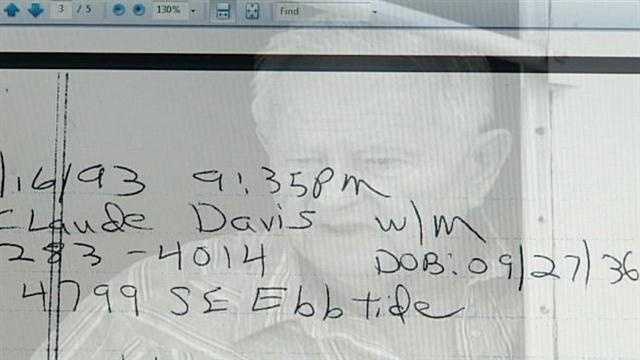 3 / 5 130% Find
/16/93 9:35pm
Claude Davis w/m
283-4014 DOB: 09/27/36
4799 SE Ebbtide